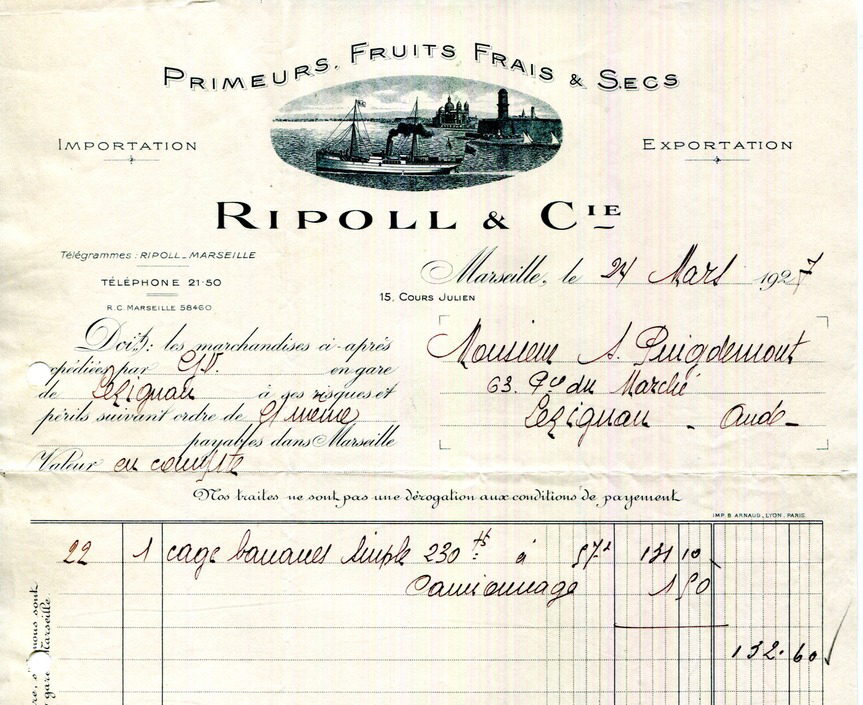 PRIMEURS, FRUITS FRAIS & SECS
IMPORTATION
EXPORTATION
RIPOLL & CIE
Télégrammes : RIPOLL_MARSEILLE
TÉLÉPHONE 21-50
R.C. MARSEILLE 58460
Marseille, le 24 Mars 1927
15, COURS JULIEN
Doit: les marchandises ci-après
expédiées par G.V. en gare
de Lezignan à ses risques et
périls suivant ordre de
payables dans Marseille
Valeur en compte
Monsieur A. Puigdemont
63. du Marché
Lezignan - Aude -
Nos traites ne sont pas une dérogation aux conditions de payement
IMP. B. ARNAUD, LYON, PARIS
22 1 cage bananes simple 230 à 57 131 10
Camionnage 1 50
132.60
nous sont
gare Marseille